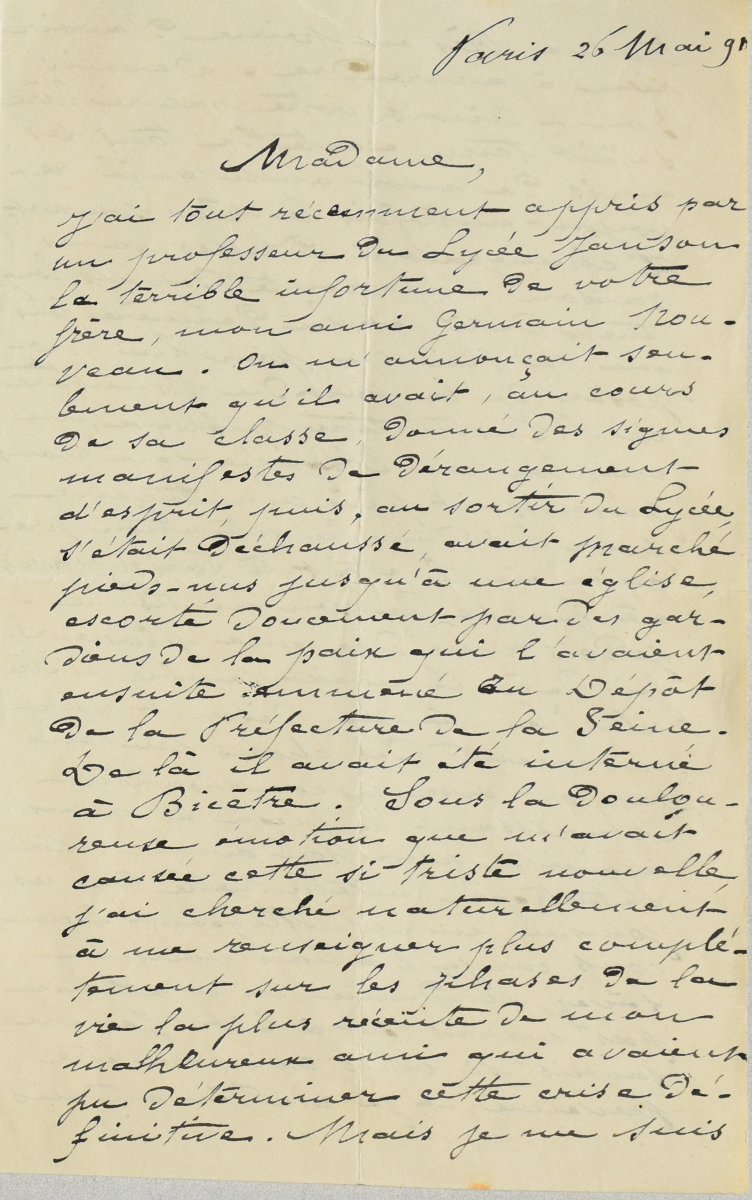 Paris 26 Mai 91
Madame,
J'ai tout récemment appris par
un professeur du Lycée Janson
la terrible infortune de votre
frère, mon ami Germain Nou-
veau. On m'annonçait seu-
lement qu'il avait, au cours
de sa classe, donné des signes
manifestes de dérangement
d'esprit, puis, au sortir du Lycée,
s'était déchaussé, avait marché
pieds-nus jusqu'à une église,
escorté doucement par des gar-
diens de la paix qui l'avaient
ensuite emmené au Dépôt
de la Préfecture de la Seine.
De là il avait été interné
à Bicêtre. Sous la doulou-
reuse émotion que m'avait
causée cette si triste nouvelle,
j'ai cherché naturellement
à me renseigner plus complé-
tement sur les phases de la
vie la plus récente de mon
malheureux ami qui avaient
pu déterminer cette crise dé-
finitive. Mais je me suis